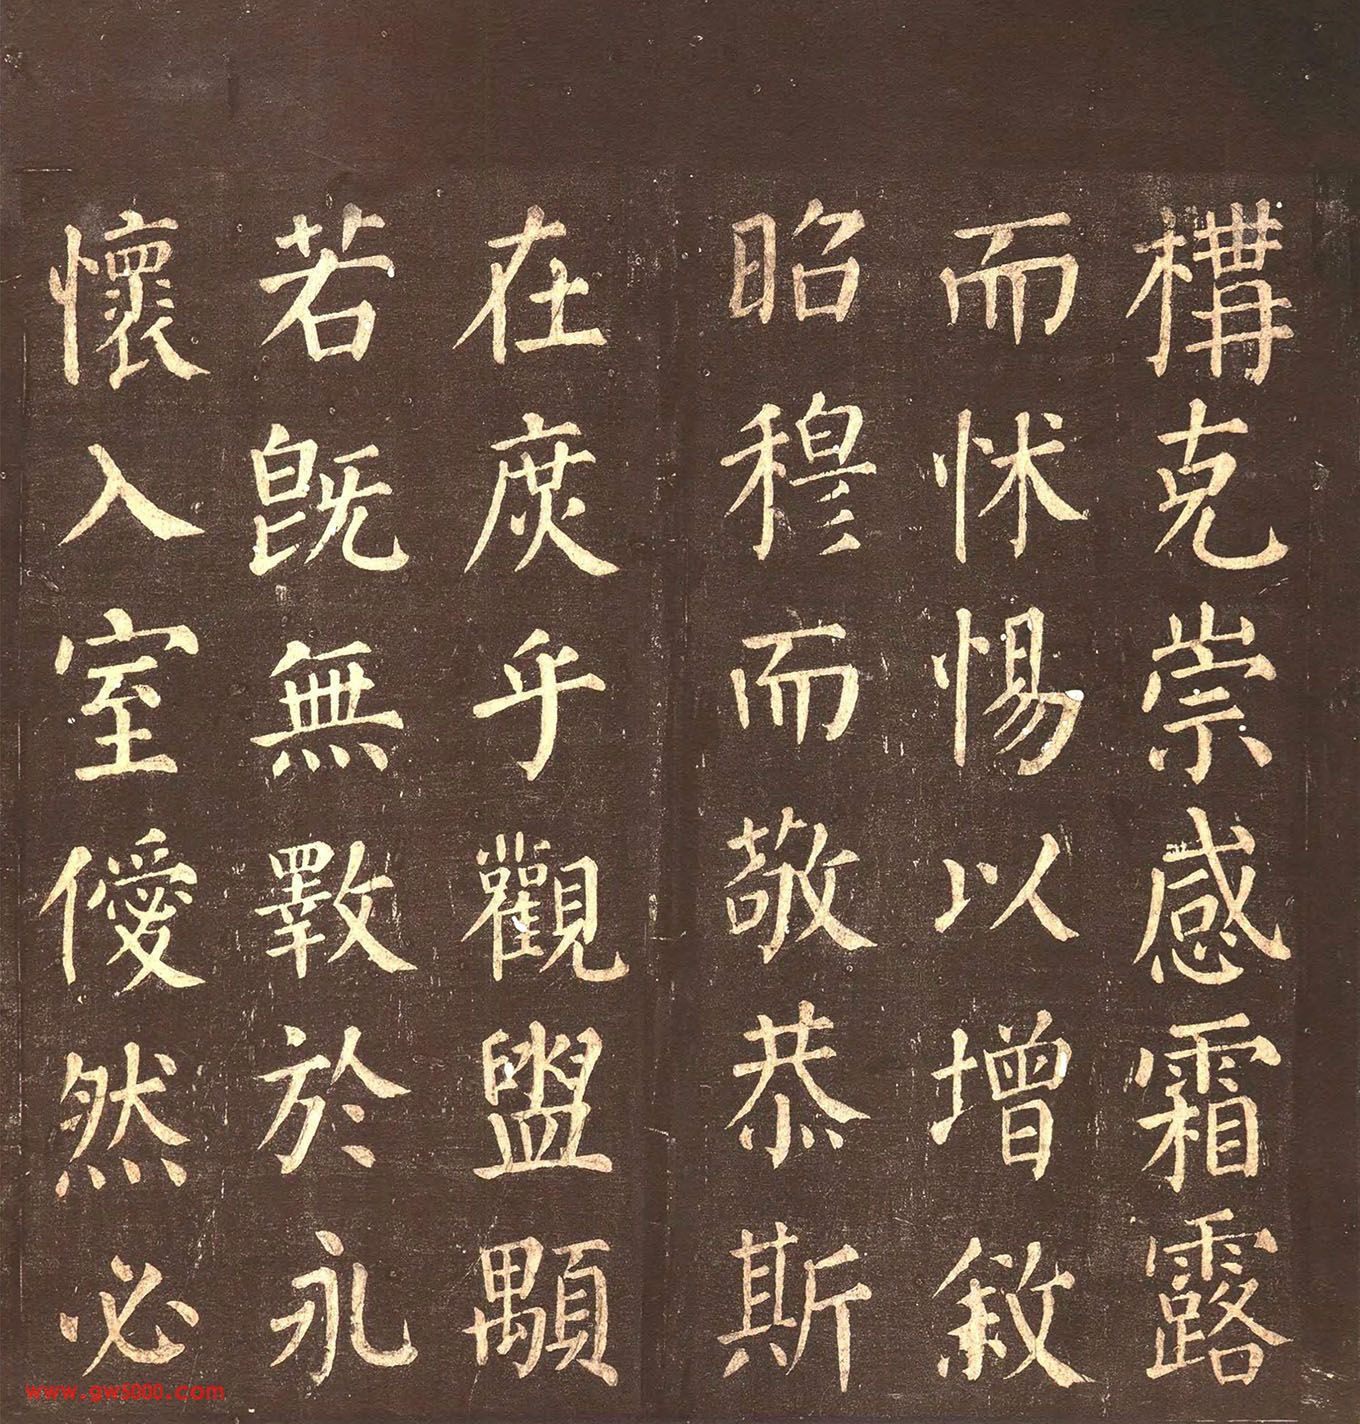 構克崇感霜露
而怵惕以增敘
昭穆而敬恭斯
在庶乎觀盥顒
若既無斁於永
懷入室僾然必
www.gw5000.com